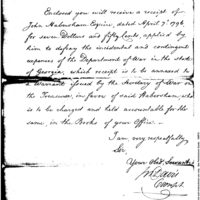 Enclosed you will receive a receipt of
John Habersham Esquire, dated April 7th 1796
for seven Dollars and fifty Cents, applied by
him to defray the incidental and contingent
expences of the Department of War in the State
of Georgia, which receipt is to be annexed to
a Warrant issued by the Secretary of War on
the Treasurer, in favor of said Habersham, who
is to be charged and held accountable for the
same, in the Books of your Office.
I am, very respectfully
Sir
Your Obdt. Servant